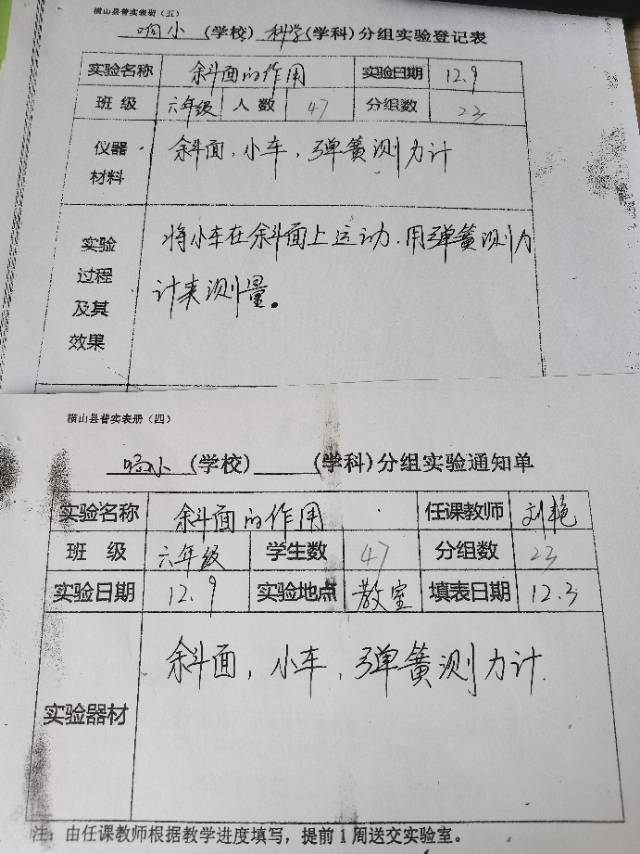 横山县普实表册（五）
响小（学校）科学（学科）分组实验登记表
实验名称 斜面的作用 实验日期 12.9
班级 六年级 人数 47 分组数 23
仪器材料 斜面、小车、弹簧测力计
实验过程及其效果 将小车在斜面上运动.用弹簧测力
计来测量。
横山县普实表册（四）
响小（学校）（学科）分组实验通知单
实验名称 斜面的作用 任课教师 刘艳
班级 六年级 学生数 47 分组数 23
实验日期 12.9 实验地点 教室 填表日期 12.3
实验器材 斜面，小车，弹簧测力计.
注：由任课教师根据教学进度填写，提前1周送交实验室。